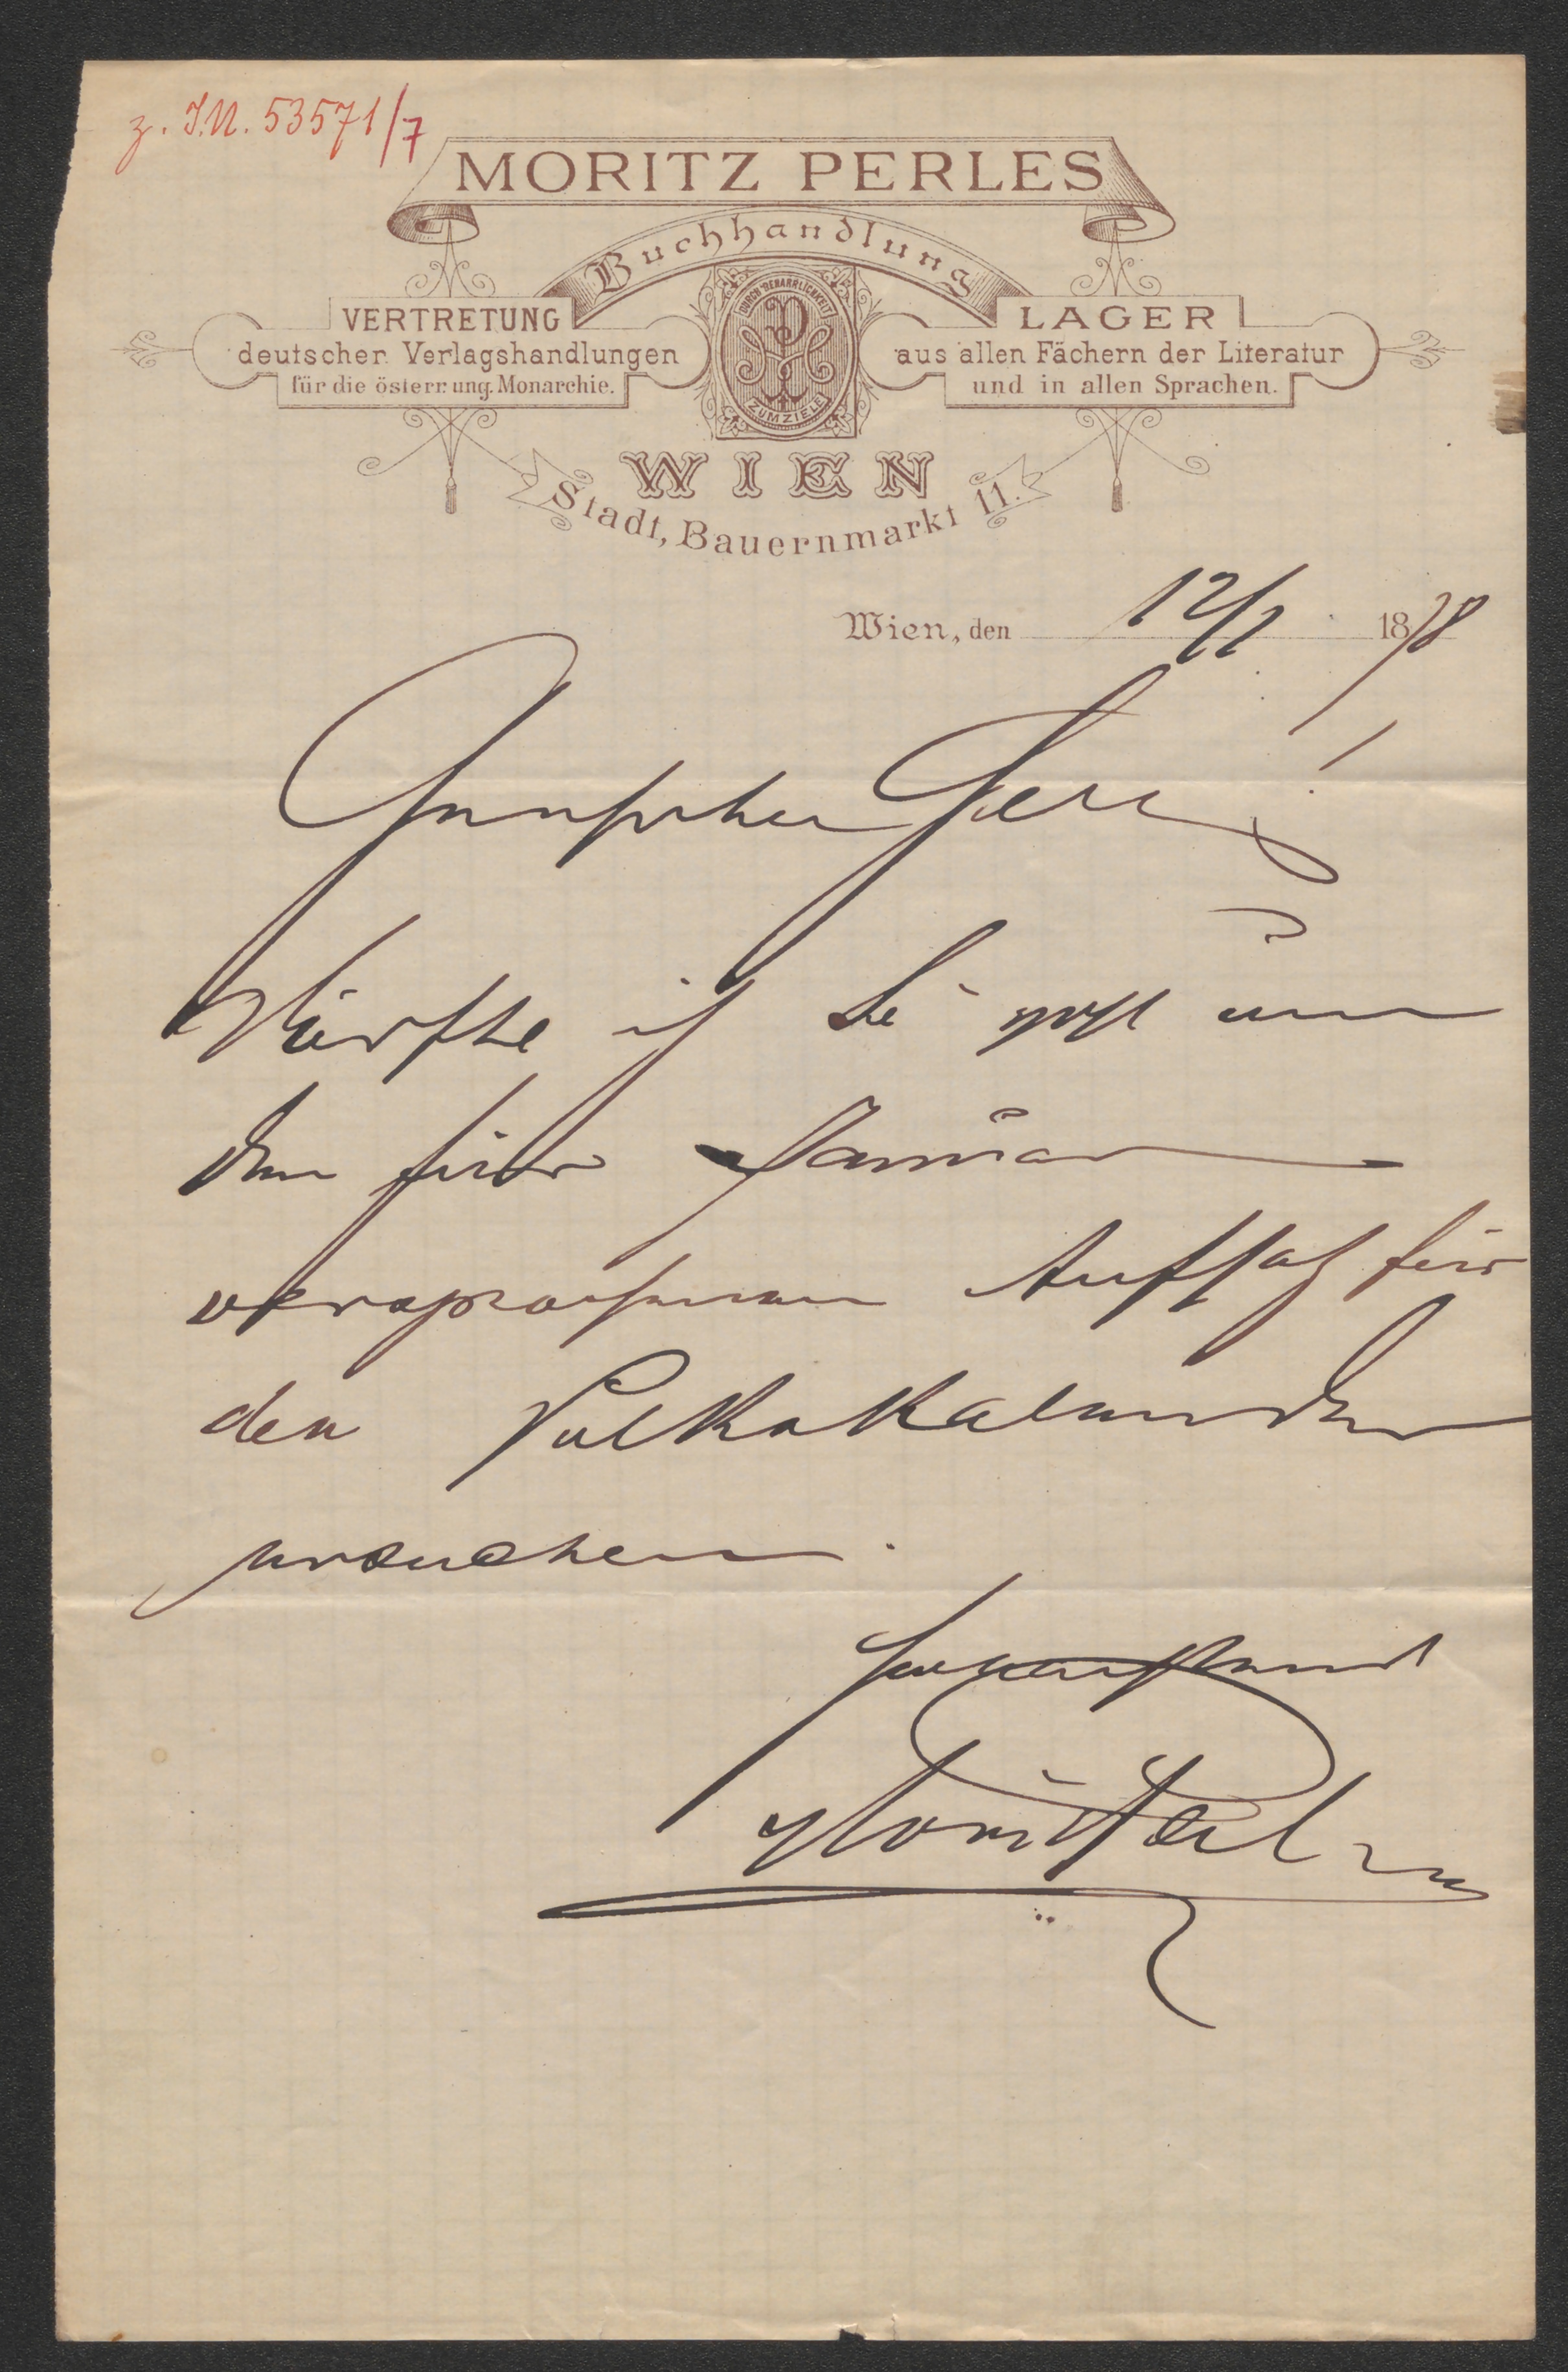 z. I.N. 53571/7
MORITZ PERLES
Buchhandlung
VERTRETUNG
deutscher Verlagshandlungen
für die österr. ung. Monarchie.
DURCH BEHARRLICHKEIT
ZUM ZIELE
LAGER
aus allen Fächern der Literatur
und in allen Sprachen.
WIEN
Stadt, Bauernmarkt 11.
Wien, den 12/1 1878
Geehrter Herr!
Dürfte ich Sie um
den für Januar
versprochenen Aufsatz für
den Volkskalender
ersuchen.
Hochachtend
Moritz Perles